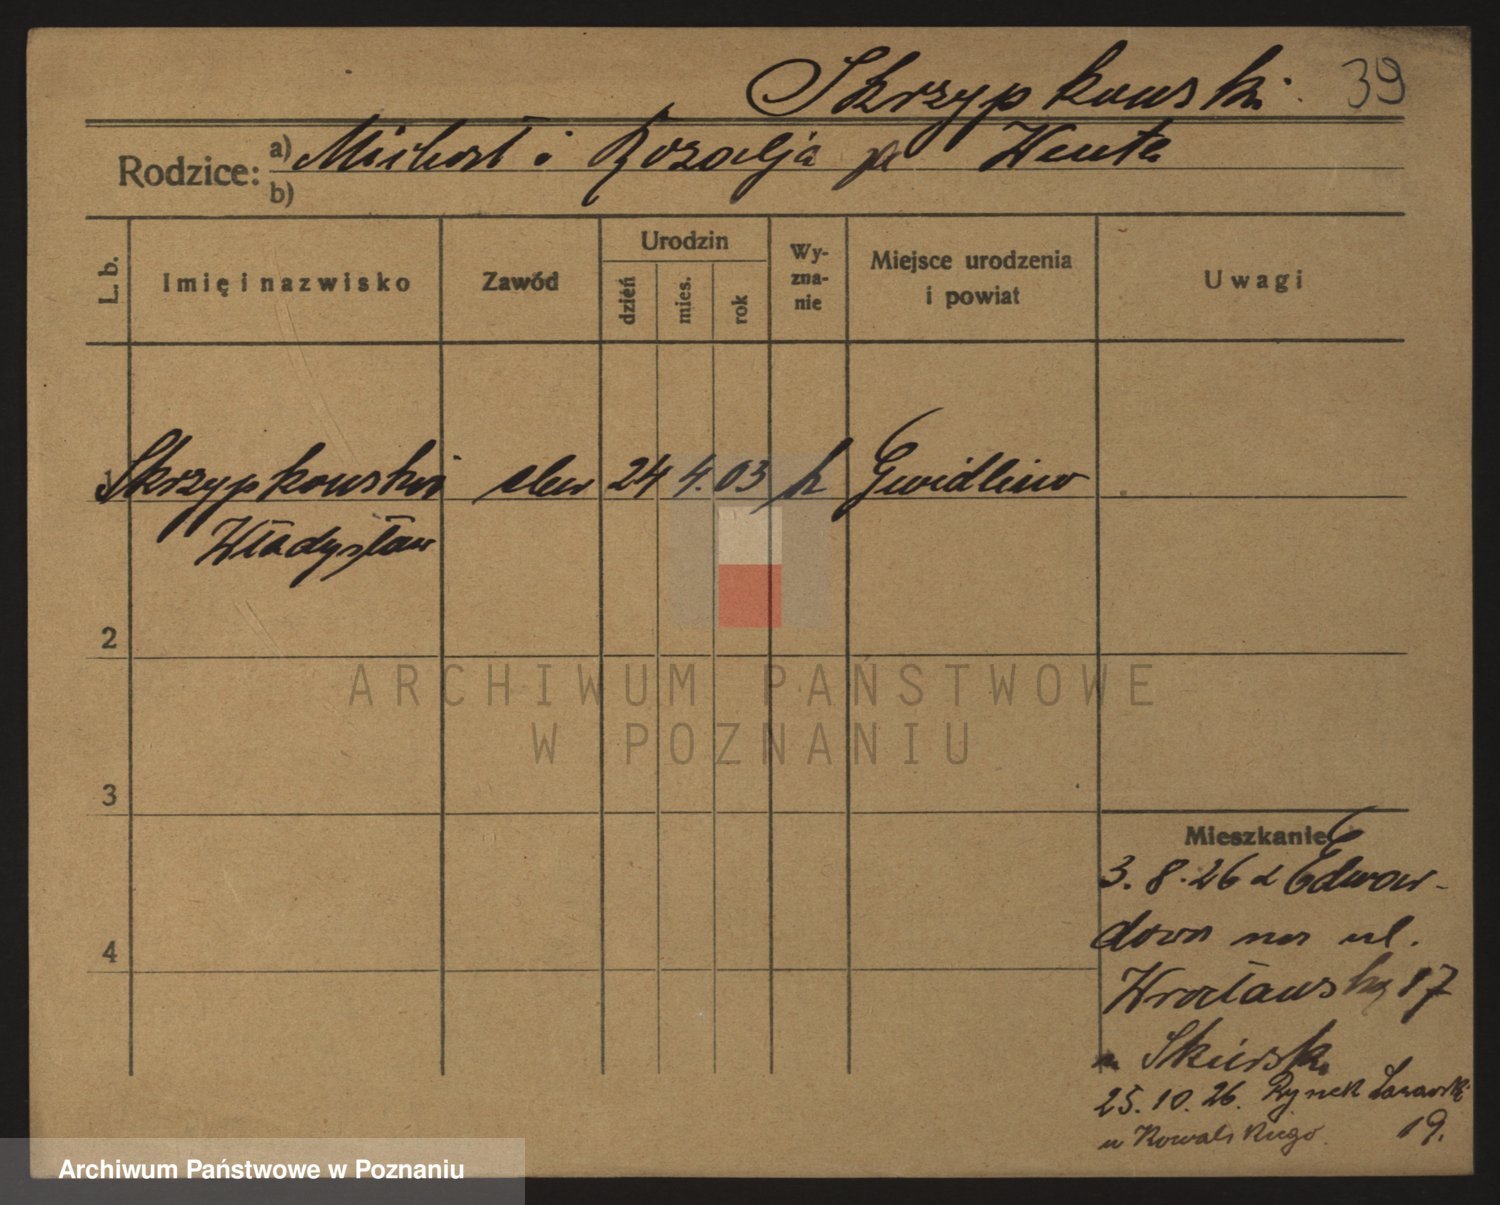 Skrzypkowski. 39
Rodzice: a) Michał i Rozalja Wenta
b)
L. b. Imię i nazwisko Zawód Urodzin dzień mies. rok Wy-zna-nie Miejsce urodzenia i powiat Uwagi
1 Skrzypkowski 24 4. 03 k Gwidlino
Władysław
2
ARCHIWUM PAŃSTWOWE
W POZNANIU
3
Mieszkanie
3. 8. 26 z Edwar-
dowa na ul.
Wrocławską 17
u Skórski
25. 10. 26. Rynek Łazarski
u Kowalskiego 19.
4
Archiwum Państwowe w Poznaniu